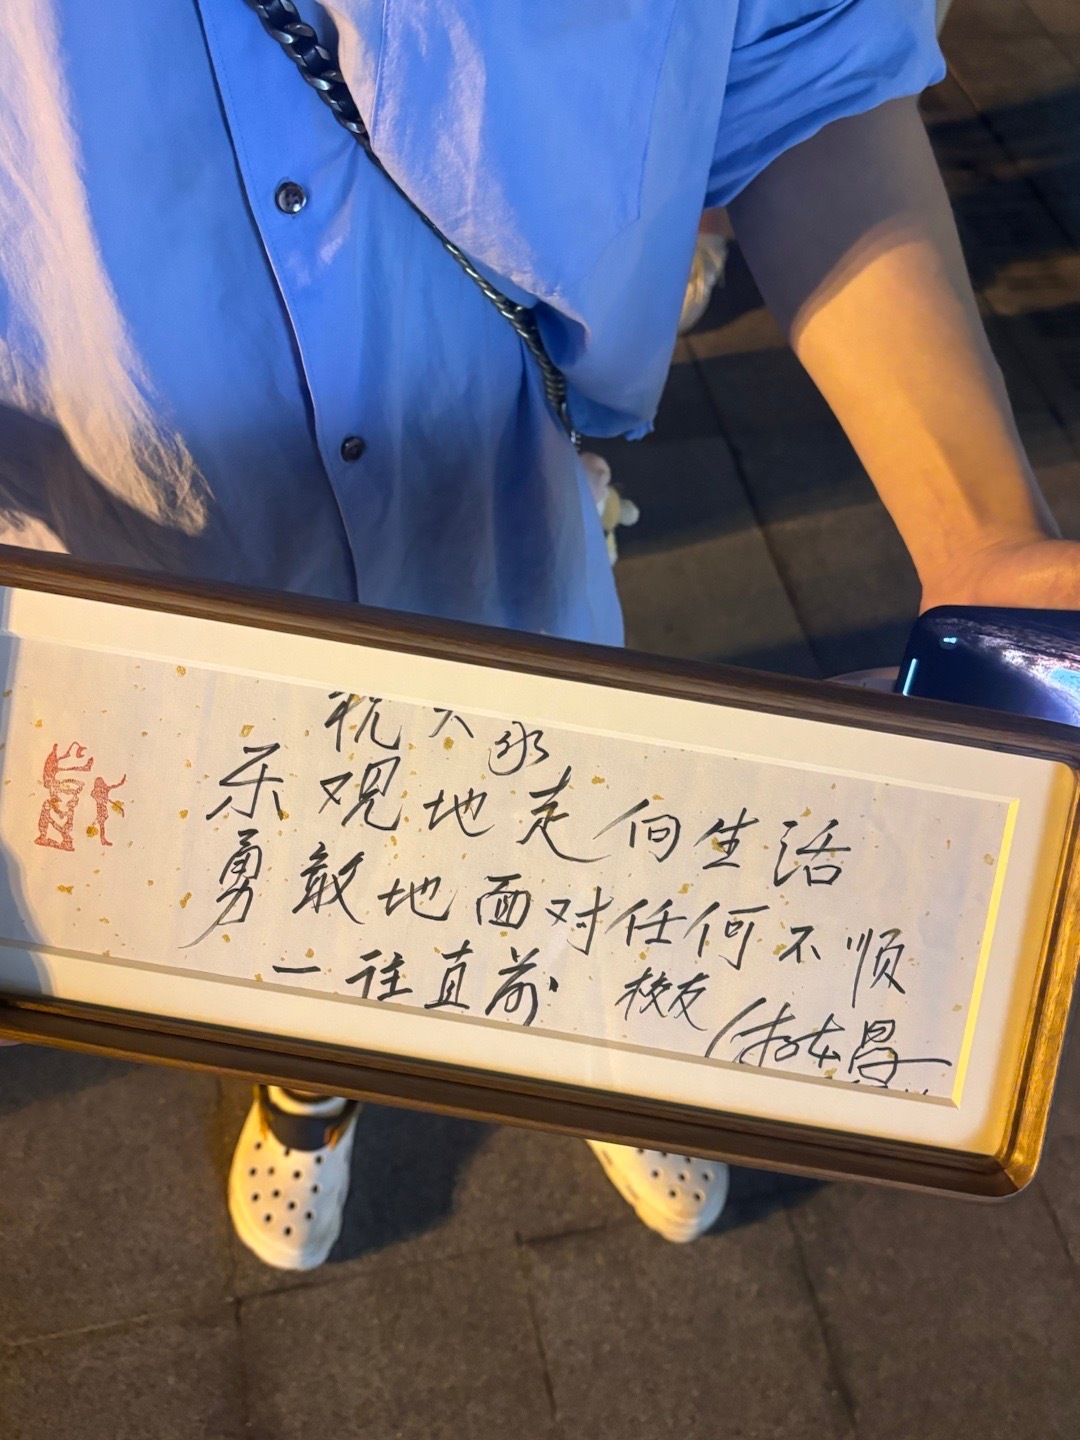 祝大
永
乐观地走向生活
勇敢地面对任何不顺
一往直前 校友